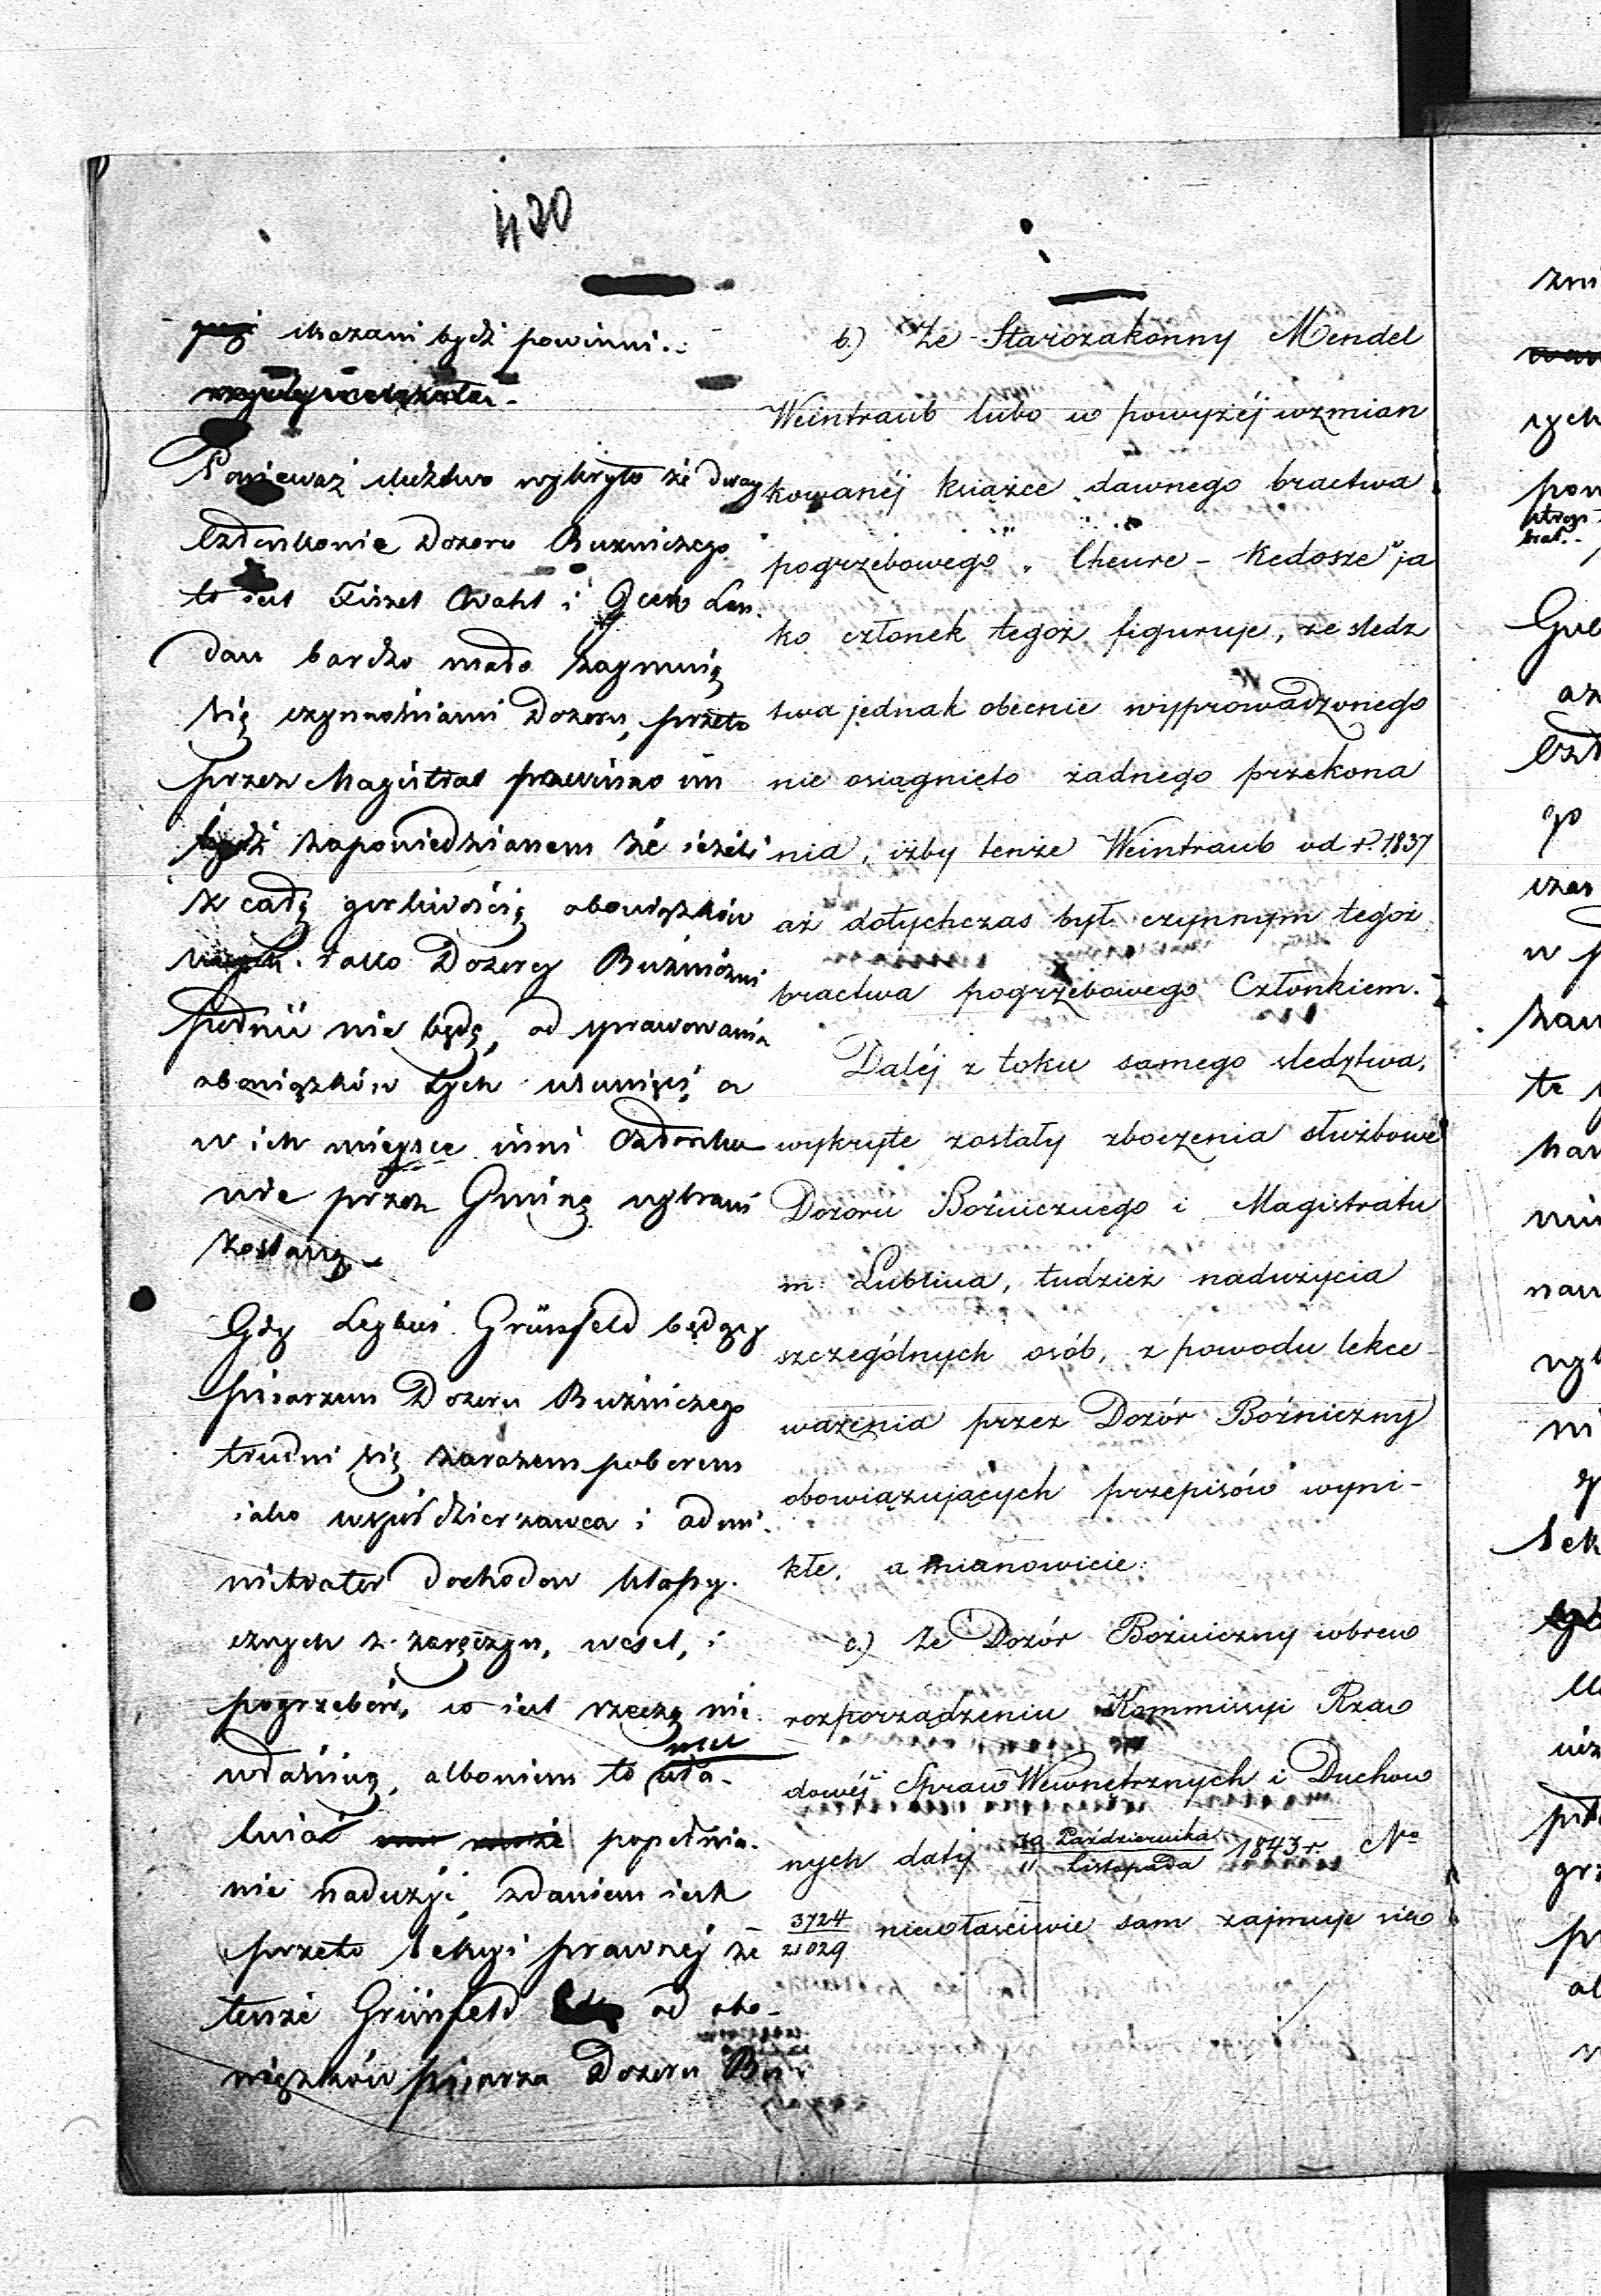 420
ukazani bydź powinni.
Ponieważ śledztwo wykryło że dway
Członkowie Dozoru Buzniczego
to iest Fiszel Wahl i Icek Lan
dau bardzo mało zaymuią
się czynnościami Dozoru, przeto
przez Magistrat powinno im
bydź zapowiedzianem że ieżeli
z całą gorliwością obowiązków
iako Dozorcy Bużniczni
pełnić nie będą, od sprawowania
obowiązków tych usunięci, a
w ich mieysce inni Członko
wie przez Gminę wybrani
zostaną
Gdy Leybuś Grünfeld będący
pisarzem Dozoru Buźniczego
trudni się zarazem poborem
iako współdzierzawca i admi
nistrator dochodow klassy
cznych z zaręczyn, wesel, i
pogrzebów, co iest rzeczą nie
właściwą, albowiem to uła
twiać popełnia
nie nadużyć, zdaniem iest
przeto Sekcyi prawnéj że
tenże Grünfeld od obo
wiązków pisarza Dozoru Bu
b.) Że Starozakonny Mendel
Weintraub lubo w powyżéj wzmian
kowanéj książce dawnego bractwa
pogrzebowego „Cheure - Kedosze" ja
ko członek tegoż figuruje, ze sledz
twa jednak obecnie wyprowadzonego
nie osiągnięto żadnego przekona
nia, iżby tenże Weintraub od r. 1837
aż dotychczas był czynnym tegoż
bractwa pogrzebowego Członkiem.
Daléj z toku samego sledztwa,
wykryte zostały zboczenia służbowe
Dozoru Bożniczného i Magistratu
m. Lublina, tudzież nadużycia
szczególnych osób, z powodu lekce
ważenia przez Dozór Bożniczny
obowiązujących przepisów wyni-
kłe, a mianowicie:
c.) Że Dozór Bożniczny wbrew
rozporządzeniu Kommissyi Rzą
dowéj Spraw Wewnętrznych i Duchow
nych daty 30 Października / 11 Listopada 1843 r. No
3724 / 21029 niewłaściwie sam zajmuje się